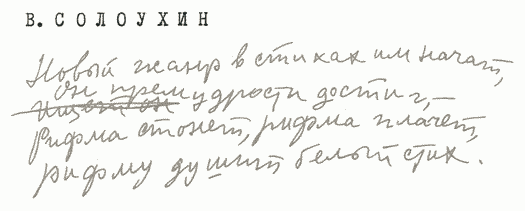 В. СОЛОУХИН
Новый жанр в стихах им начат,
Он премудрости достиг, —
Рифма стонет, рифма плачет,
рифму душит белый стих.